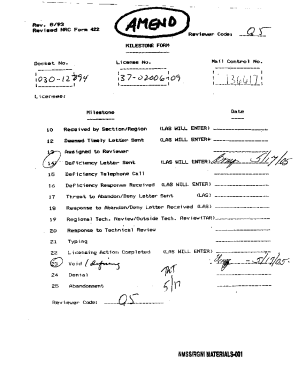 Rev. 8/93
Revised NRC Form 422
AMEND
Reviewer Code: Q5
MILESTONE FORM
Docket No. License No. Mail Control No.
030-12394 37-02006-09 136617
Licensee:
Milestone Date
10 Received by Section/Region (LAS WILL ENTER)
12 Deemed Timely Letter Sent (LAS WILL ENTER)
13 Assigned to Reviewer
14 Deficiency Letter Sent (LAS WILL ENTER) 5/17/05
15 Deficiency Telephone Call
16 Deficiency Response Received (LAS WILL ENTER)
17 Threat to Abandon/Deny Letter Sent (LAS)
18 Response to Abandon/Deny Letter Received (LAS)
19 Regional Tech. Review/Outside Tech. Review(TAR)
20 Response to Technical Review
21 Typing
22 Licensing Action Completed (LAS WILL ENTER) 5/17/05
23 Void /
24 Denial
25 Abandonment 5/17
Reviewer Code: Q5
NMSS/RGNI MATERIALS-001